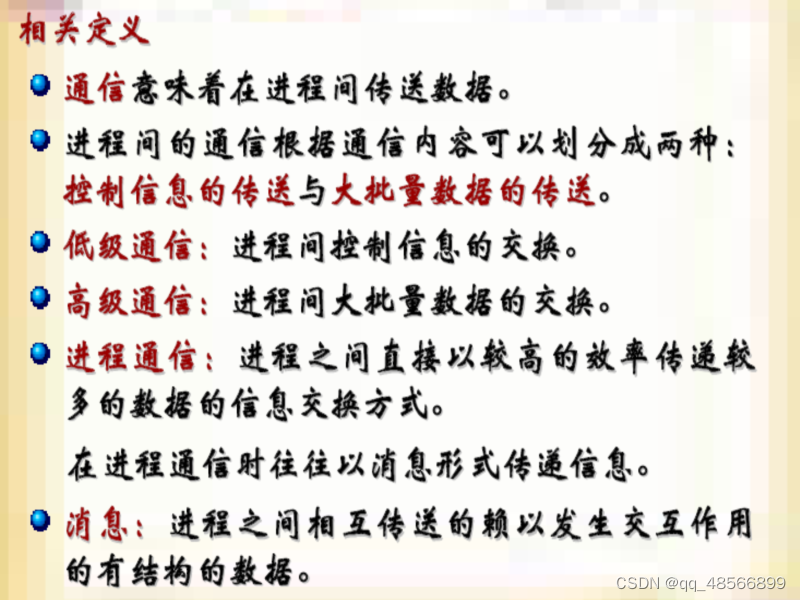 相关定义
通信意味着在进程间传送数据。
进程间的通信根据通信内容可以划分成两种：
控制信息的传送与大批量数据的传送。
低级通信：进程间控制信息的交换。
高级通信：进程间大批量数据的交换。
进程通信：进程之间直接以较高的效率传递较
多的数据的信息交换方式。
在进程通信时往往以消息形式传递信息。
消息：进程之间相互传送的赖以发生交互作用
的有结构的数据。
CSDN @qq_48566899